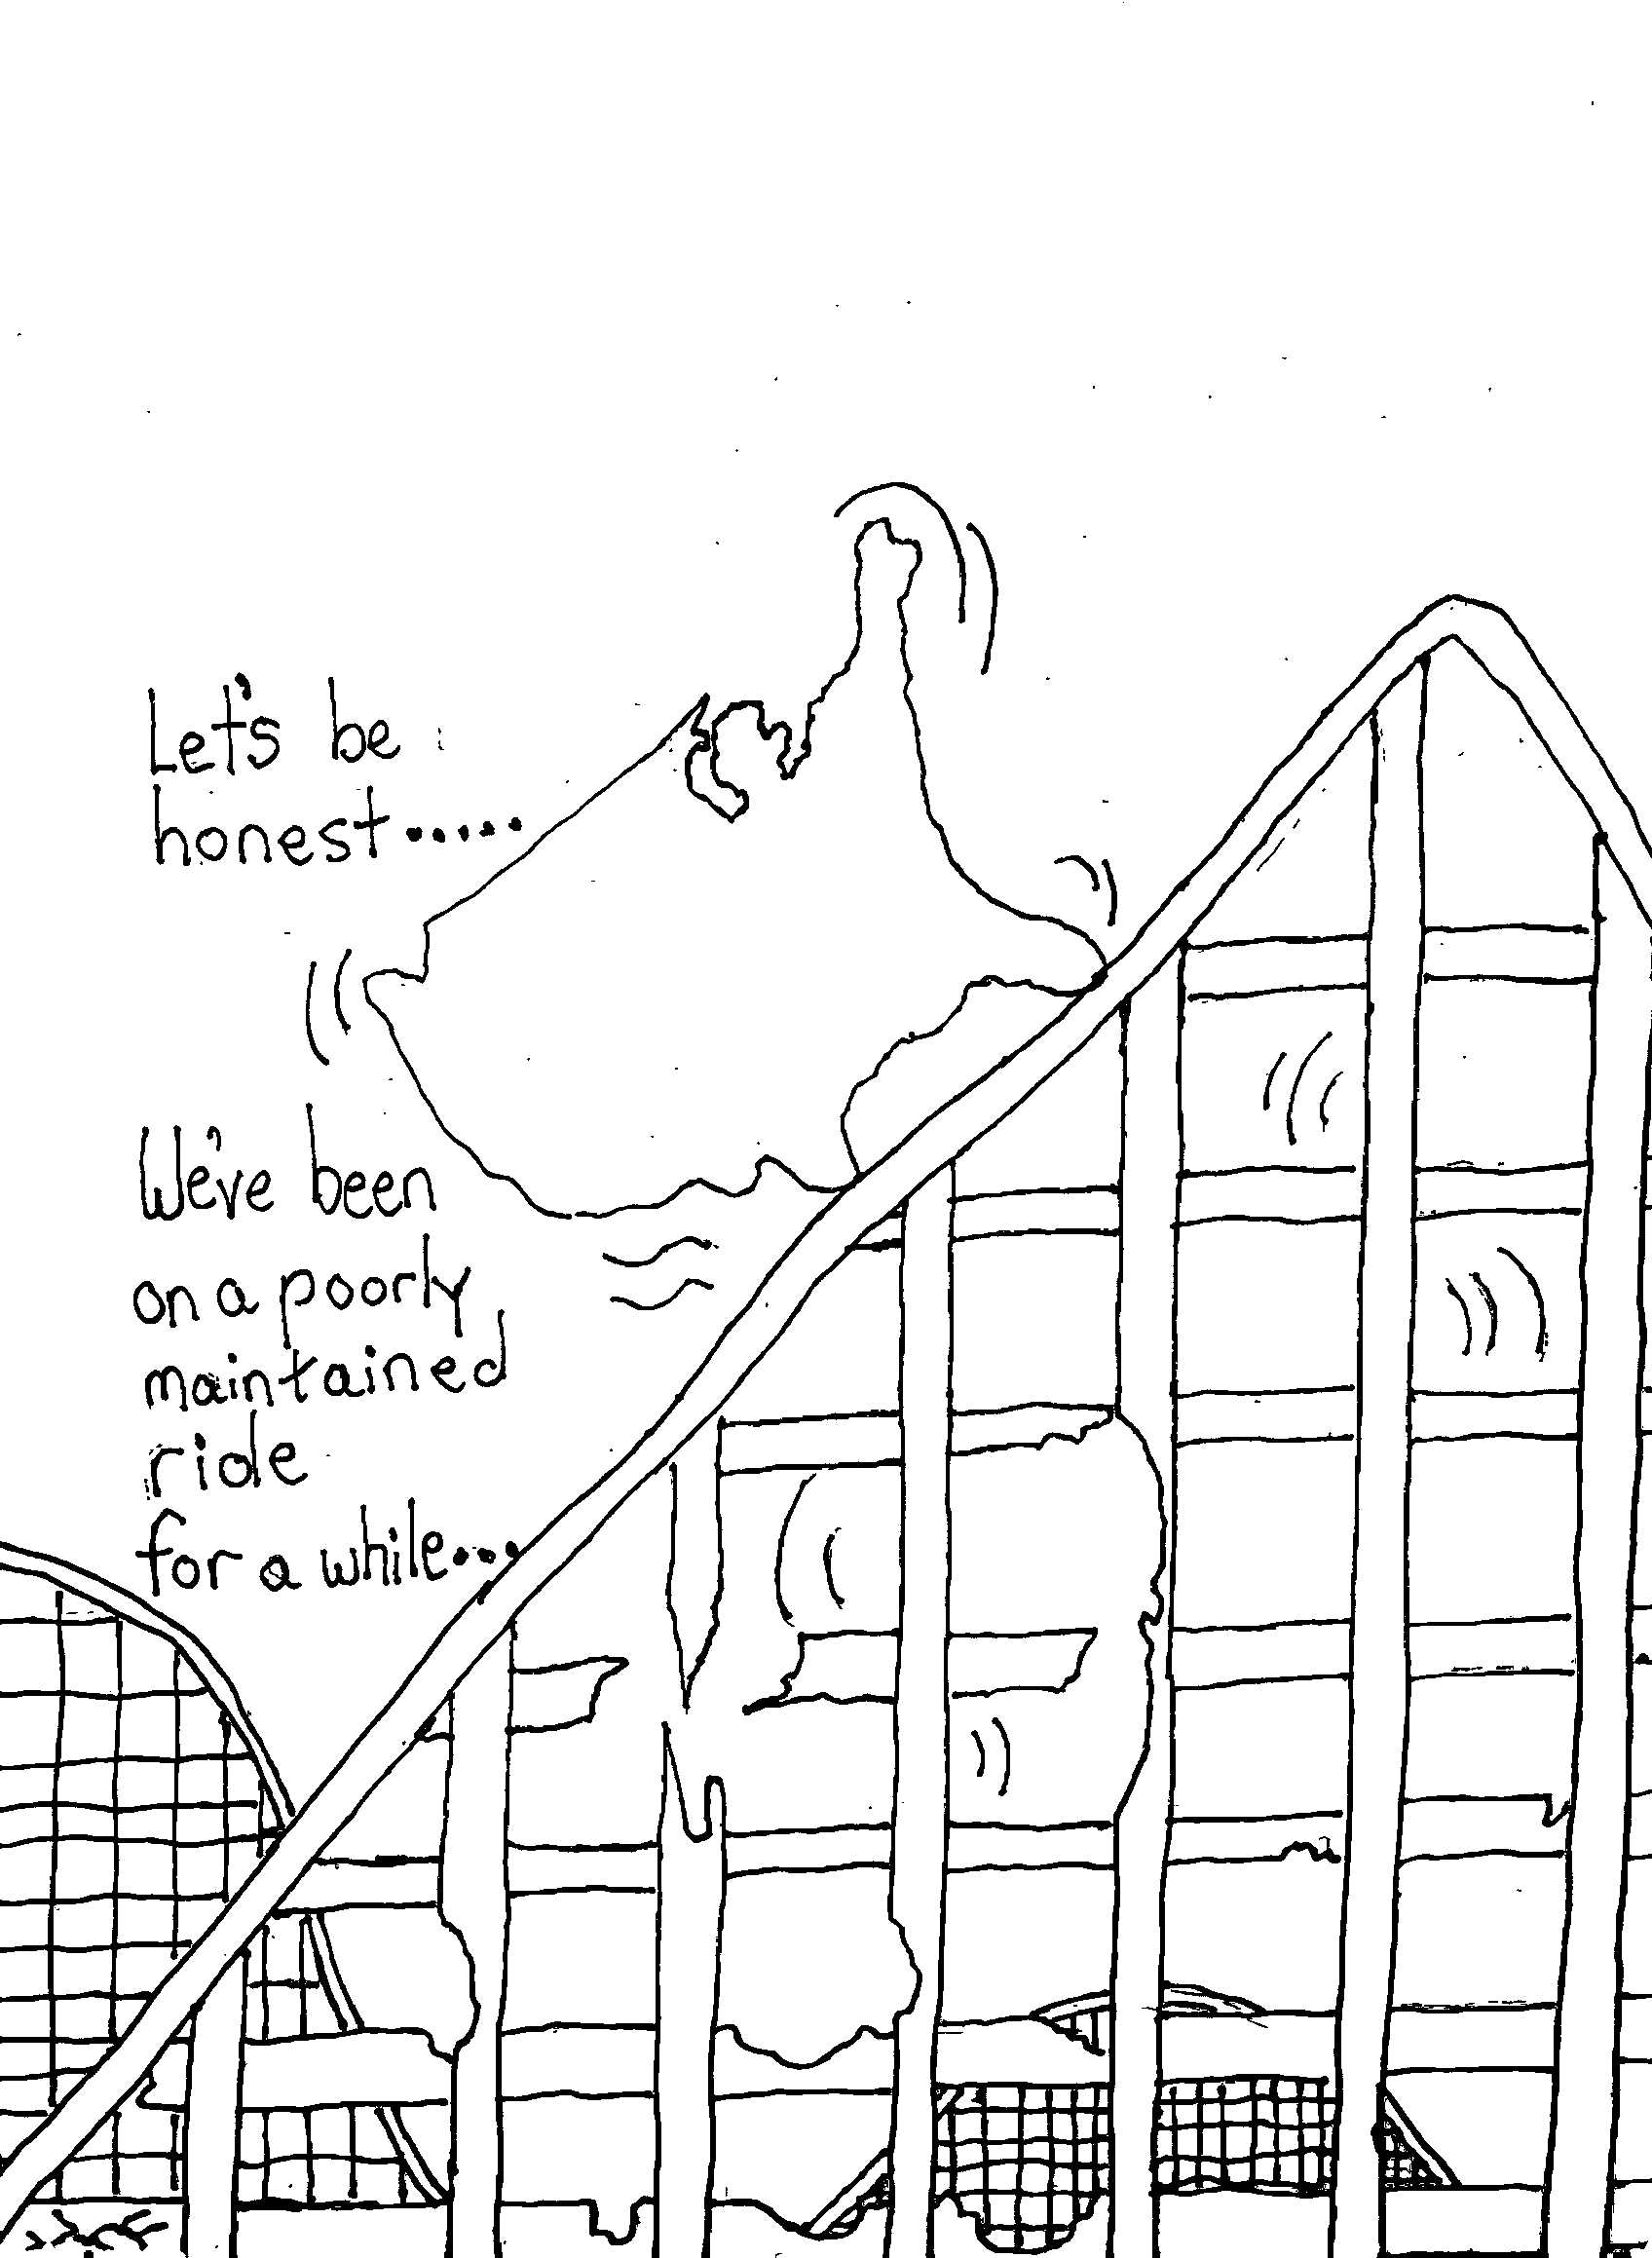 Let's be
honest.....
We've been
on a poorly
maintained
ride
for a while...